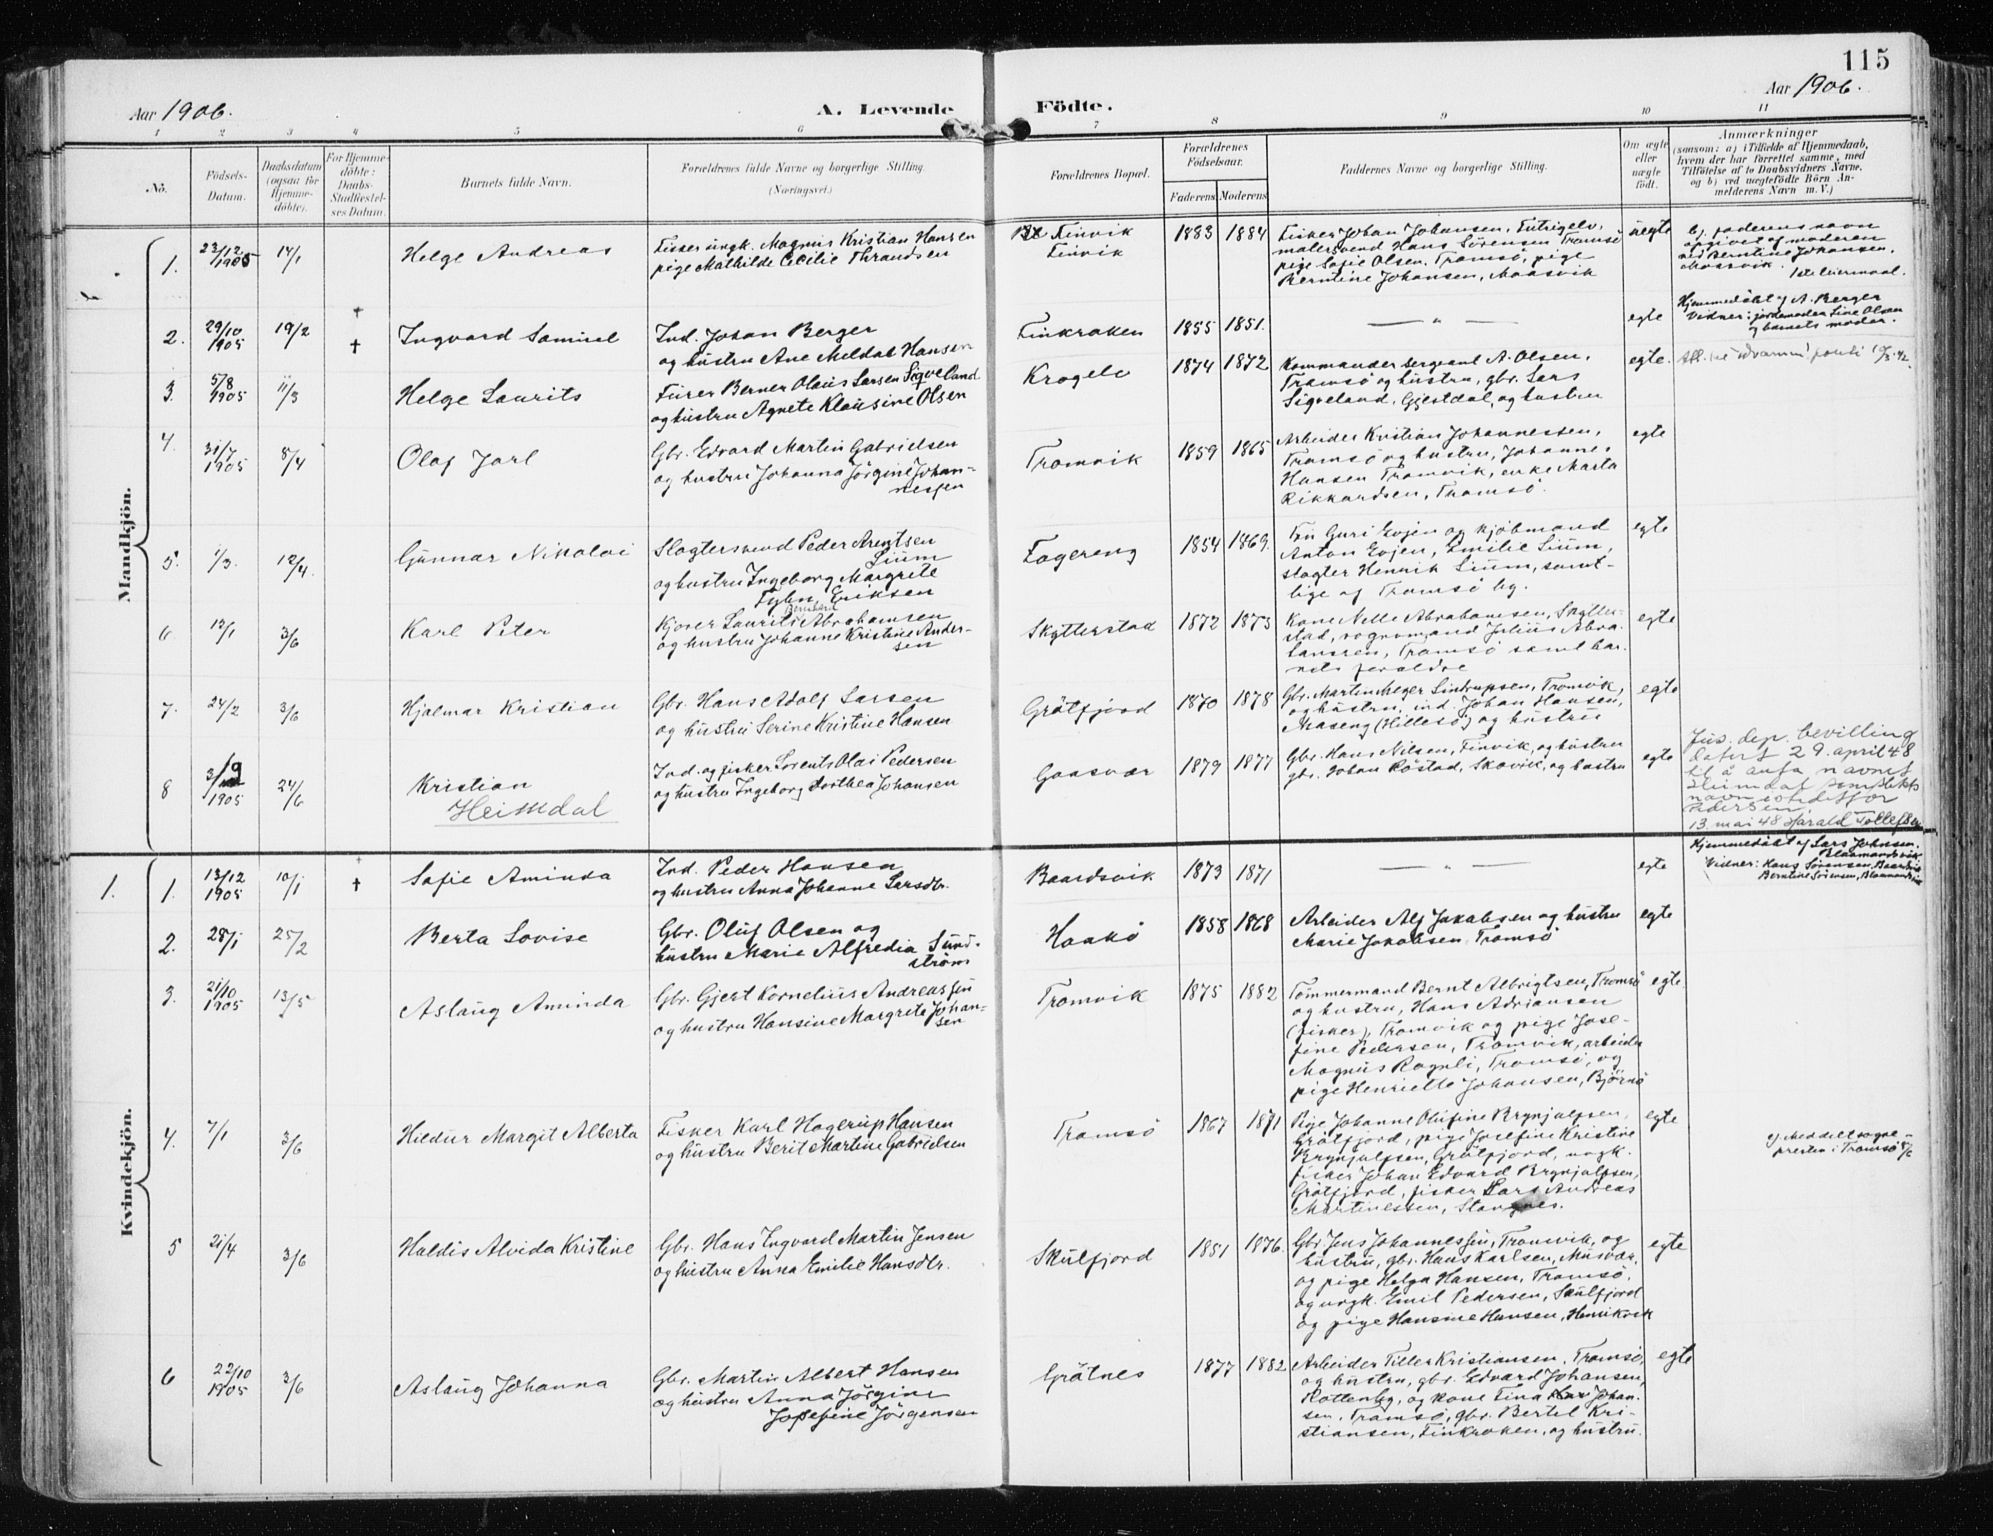 115
Aar 1906.
A. Levende
Födte.
Aar 1906.
1 2 3 4 5 6 7 8 9 10 11
No.
Födsels-
Datum.
Daabsdatum
(ogsaa for
Hjemme-
döbte).
For Hjemme-
döbte:
Daabs-
Stadfæstel-
ses Datum.
Barnets fulde Navn.
Forældrenes fulde Navne og borgerlige Stilling.
(Næringsvei.)
Forældrenes Bopæl.
Forældrenes
Födselsaar.
Faderens Moderens
Faddernes Navne og borgerlige Stilling.
Om ægte
eller
uægte
födt.
Anmærkninger
(saasom: a) i Tilfælde af Hjemmedaab,
hvem der har forrettet samme, med
Tilföielse af to Daabsvidners Navne,
og b) ved uægtefödte Börn An-
melderens Navn m. V.)
Mandkjön.
1.
23/12
1905
14/1
Helge Andreas
Fisker ungk. Magnus Kristian Hansen
pige Mathilde Cecilie Thrandsen
Finvik
Finvik
1883 1884
Fisker Johan Johansen, Futrigelv,
malersvend Hans Sörensen Tromsö
pige Sofie Olsen, Tromsö, pige
Berntine Johansen, Maasvik
uegte
b) faderens navn
opgivet af moderen
ved Berntine Johansen,
Maasvik.
1ste leiermaal.
2.
29/10
1905
19/2
†
†
Ingvard Samuel
Ind. Johan Berger
og hustru Ane Meldal Hansen
Finkroken
1855 1851.
— " —
egte
Hjemmedöbt af A. Berger
Vidner: jordemoder Line Olsen
og barnets moder.
3.
5/8
1905
11/3
Helge Laurits
Furer Berner Olaus Larsen Sigveland
og hustru Agnete Klausine Olsen
Krogelv
1874 1872
Kommandersergeant A. Olsen,
Tromsö og hustru, gbr. Lars
Sigveland, Gjestdal, og hustru
egte.
4.
31/7
1905
8/4
Olaf Jarl
Gbr. Edvard Martin Gabrielsen
og hustru Johanna Jörgine Johan-
nessen
Tromvik
1859 1865
Arbeider Kristian Johannessen,
Tromsö og hustru, Johannes
Hansen Tromvik, enke Marta
Rikkardsen, Tromsö.
egte
5.
1/3.
12/4.
Gunnar Nikolai
Slagtersvend Peder Arentsen
Lium
og hustru Ingeborg Margrete
Fyhn Eriksen
Fagereng
1854 1869.
Fru Guri Evjen og kjöbmand
Anton Evjen, Emilie Lium,
slagter Henrik Lium, samt-
lige af Tromsö by.
egte
6
13/1
3/6
Karl Peter
Bernhard
Kjörer Laurits Abrahamsen
og hustru Johanne Kristine Ander-
sen
Skytterstad
1872 1873
Kone Nelle Abrahamsen, Skytter-
stad, vognmand Julius Abra-
hamsen, Tromsö samt bar-
nets foreldre
egte
7.
24/2
3/6
Hjalmar Kristian
Gbr. Hans Adolf Larsen
og hustru Serine Kristine Hansen
Grötfjord
1870 1878
Gbr. Martin Meyer Sintrupsen, Tromvik,
og hustru, ind. Johan Hansen,
Maseng (Hillesö) og hustru
egte
8
3/9
1905
24/6
Kristian
Heimdal
Ind. og fisker Lorents Olai Pedersen
og hustru Ingeborg Dorthea Johansen
Gaasvær
1879 1877
Gbr. Hans Nilsen, Finvik, og hustru
gbr. Johan Röstad, Skavik, og hustru
egte
Jus. dep. bevilling
datert 29. april 48
til å anta navnet
Heimdal som slekts
navn istedetfor
Pedersen
13. mai 48 Harald Tollefsen
Kvindekjön.
1.
1.
13/12
1905
10/1
†
†
Sofie Aminda
Ind. Peder Hansen
og hustru Anna Johanne Larsdtr.
Baardsvik
1873 1871
— " —
egte
Hjemmedöbt af Lars Johnsen,
Blaamandsvik
Vidner: Hans Sörensen, Baardsvik
Berntine Sörensen, Blaamandsvik
2.
28/1
25/2
Berta Lovise
Gbr. Oluf Olsen og
hustru Marie Alfredia Sund-
ström
Haakö
1858 1868
Arbeider Alf Jakobsen og hustru
Marie Jakobsen Tromsö
egte
3.
21/10
1905
13/5
Aslaug Aminda
Gbr. Gjert Kornelius Andreassen
og hustru Hansine Margrete Johan-
sen
Tromvik
1875 1882
Tömmermand Bernt Albrigtsen, Tromsö
og hustru, Hans Adriansen
(fisker), Tromvik og pige Jose-
fine Pedersen, Tromvik, arbeider
Magnus Rognli, Tromsö, og
pige Henriette Johansen, Björnö
egte
4.
7/1
3/6
Hildur Margit Alberta
Fisker Karl Hagerup Hansen
og hustru Berit Martine Gabrielsen
Tromsö
1867 1871
Pige Johanne Olufine Brynjulfsen,
Grötfjord, pige Josefine Kristine
Brynjulfsen, Grötfjord, ungk.
fisker Johan Edvard Brynjulfsen,
Grötfjord, fisker Lars Andreas
Martinessen, Stangnes.
egte
c) Meddelt sogne-
presten i Tromsö 8/6
5
21/4
3/6
Haldis Alvida Kristine
Gbr. Hans Ingvard Martin Jensen
og hustru Anna Emilie Hansdtr.
Skulfjord
1851 1876.
Gbr. Jens Johannessen, Tromvik, og
hustru, gbr. Hans Karlsen, Musvær,
og pige Helga Hansen, Tromsö,
og ungk. Emil Pedersen, Skulfjord
og pige Hansine Hansen, Henrikvik
egte
6
22/10
1905
3/6
Aslaug Johanna
Gbr. Martin Albert Hansen
og hustru Anna Jörgine
Josefine Jörgensen
Grötnes
1877 1882
Arbeider Tiller Kristiansen, Tromsö,
og hustru, gbr. Edvard Johansen,
Flottenby, og kone Tina Johan-
sen, Tromsö, gbr. Bertel Kri-
stiansen, Finkroken, og hustru.
egte